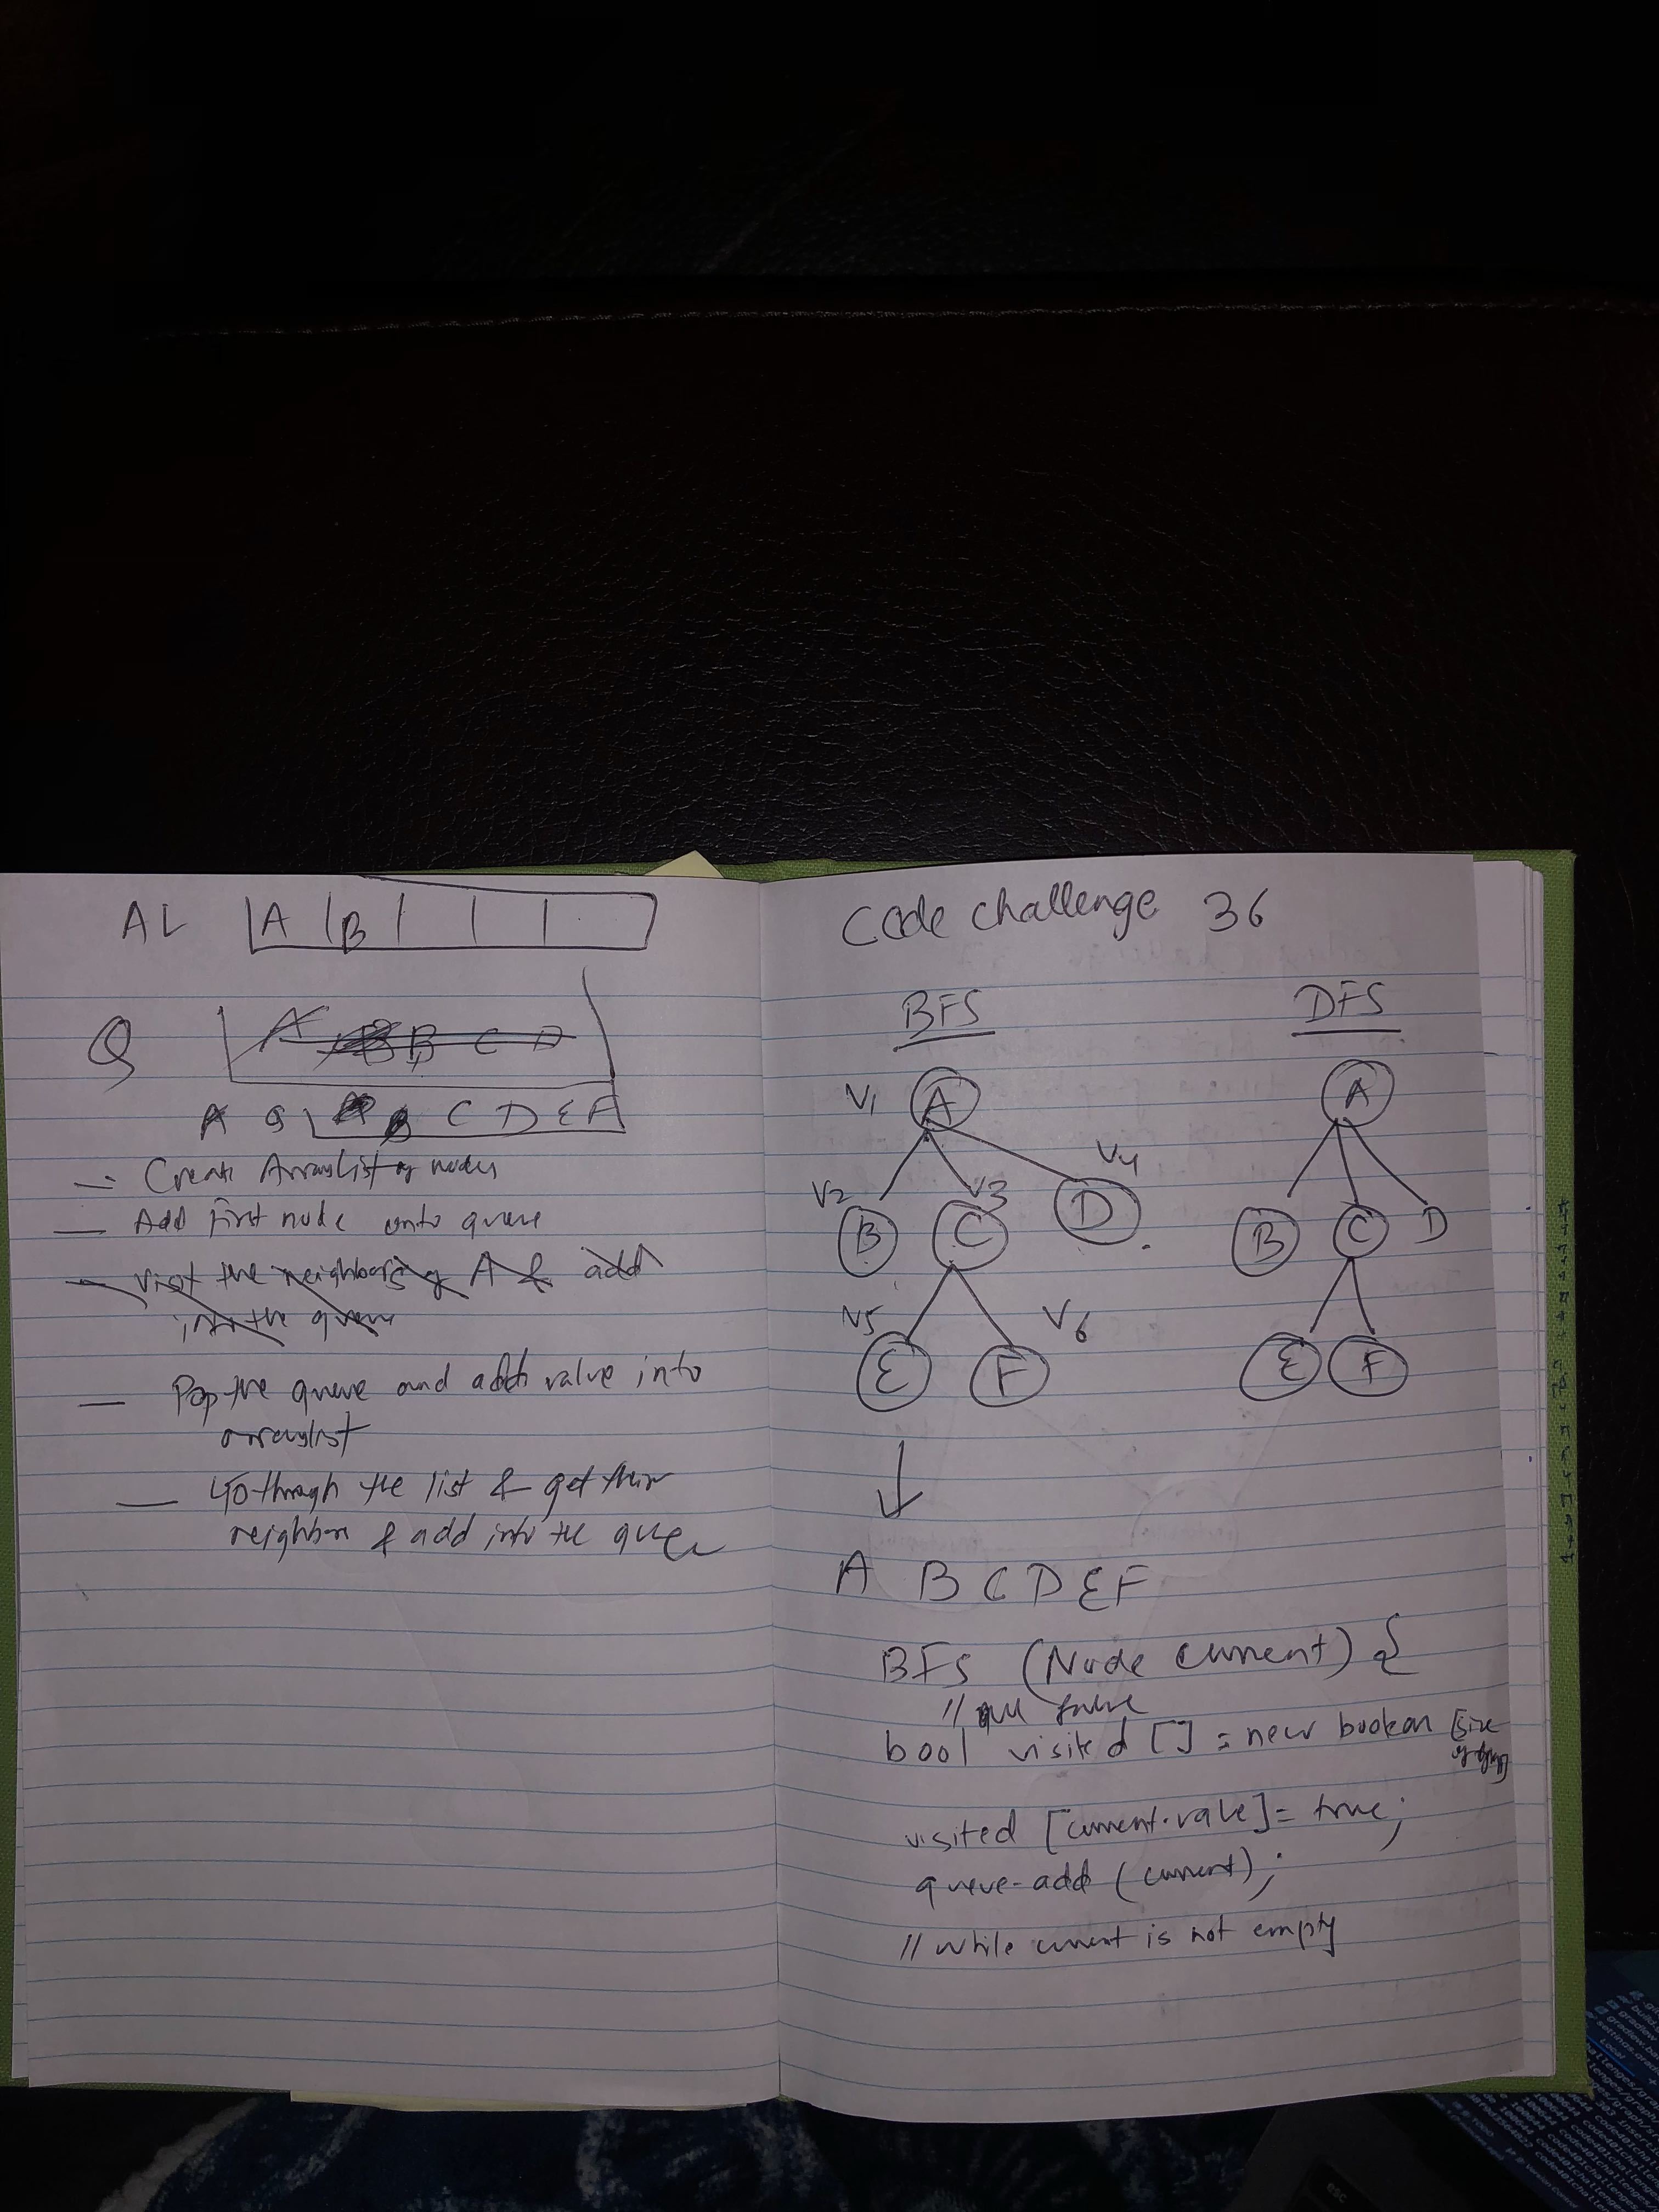 AL A B
Q A B B C D
A Q A B C D E F
— Create ArrayList of nodes
— Add First node onto queue
— Visit the neighbors of A & add
into the queue
— Pop the queue and add value into
arraylist
— Go through the list & get their
neighbors & add into the queue
Code Challenge 36
BFS DFS
V1 A A
V2 V3 V4
B C D B C D
V5 V6
E F E F
A B C D E F
BFS (Node current) {
// all false
bool visited [] = new boolean [size
of graph]
visited [current.value] = true;
queue.add (current);
// while current is not empty